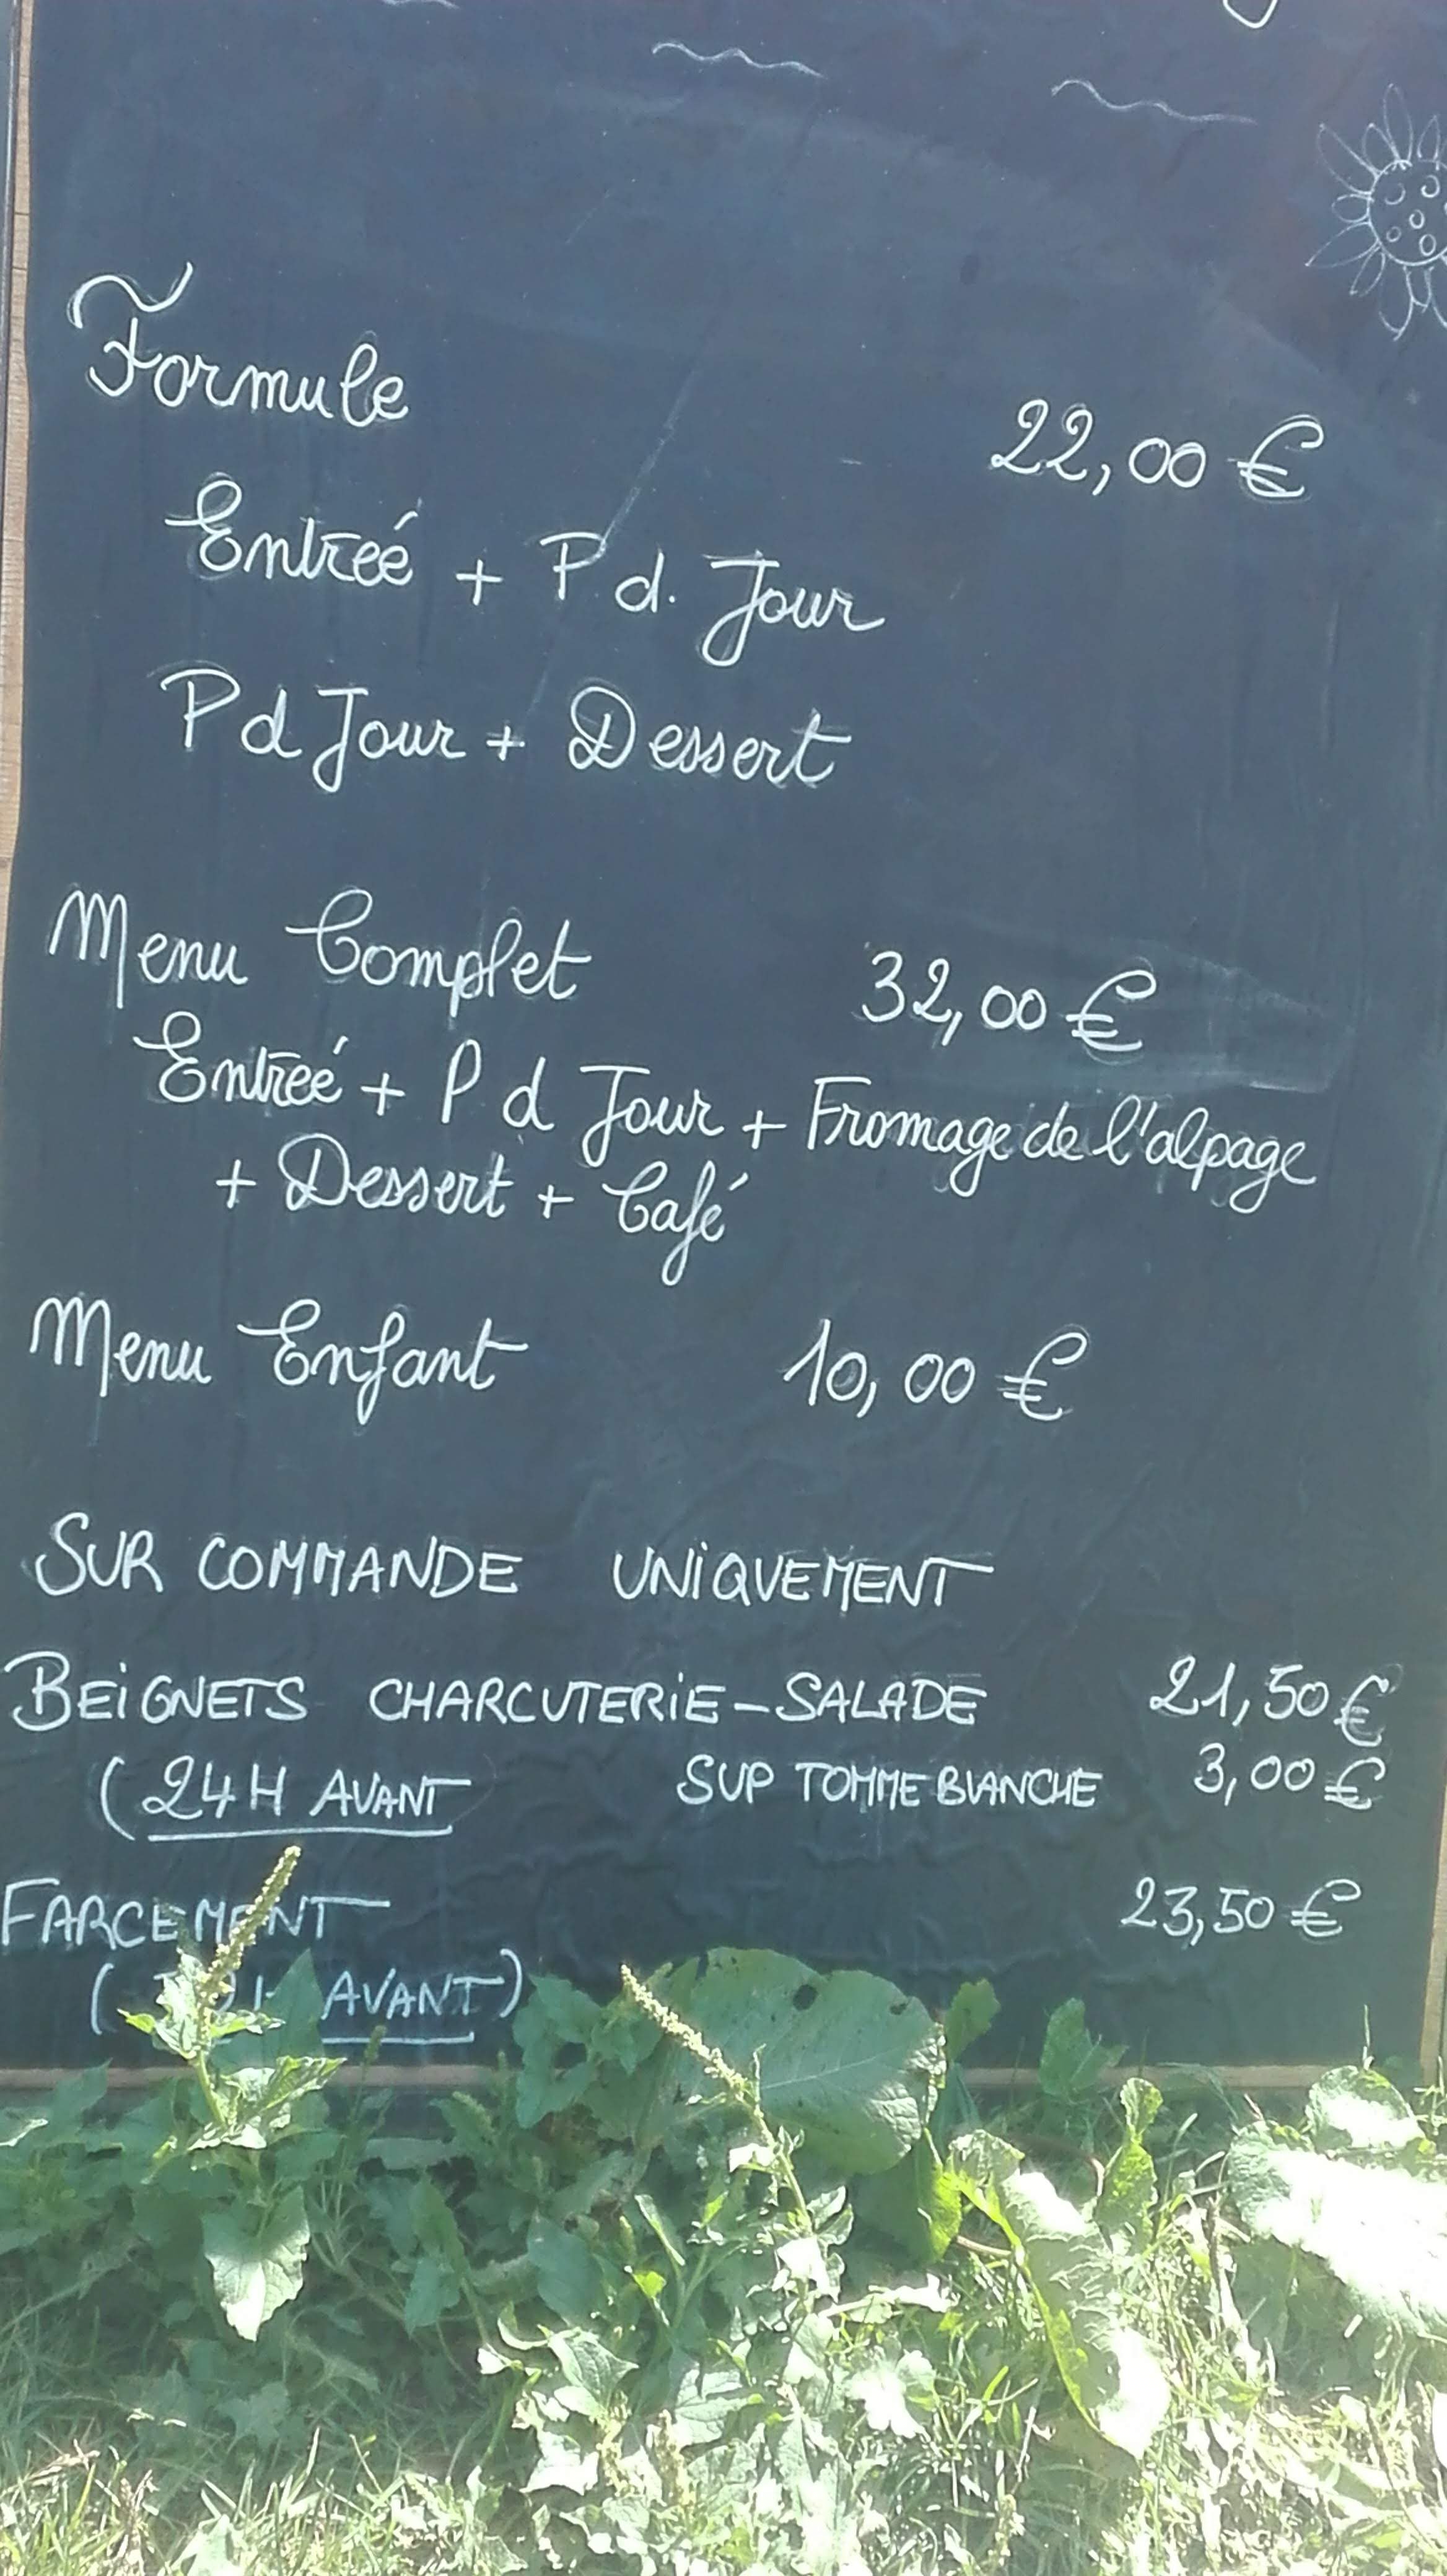 Formule
22,00 €
Entreé + P. d. Jour
P d Jour + Dessert
Menu Complet 32,00 €
Entreé + P d Jour + Fromage de l'alpage
+ Dessert + Café
Menu Enfant 10,00 €
SUR COMMANDE UNIQUEMENT
BEIGNETS CHARCUTERIE-SALADE 21,50 €
(24H AVANT SUP TOMME BLANCHE 3,00 €
FARCEMENT 23,50 €
( AVANT)